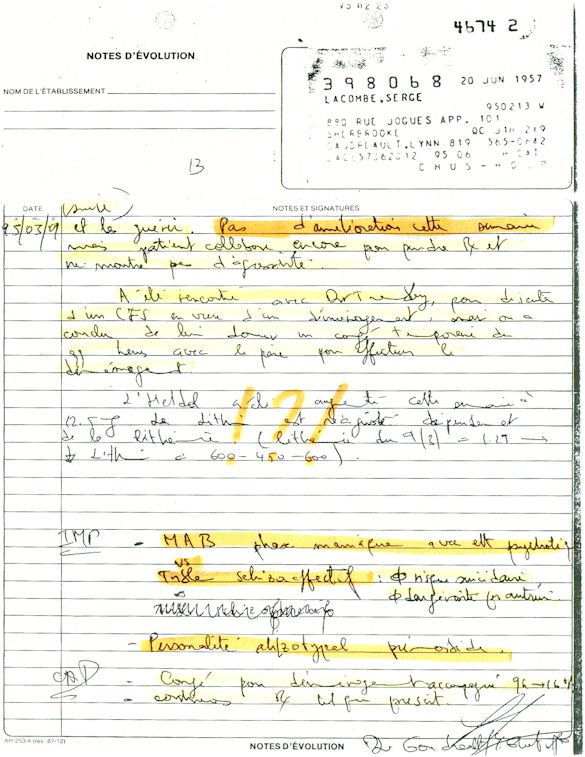 4674 2
NOTES D'ÉVOLUTION
NOM DE L'ÉTABLISSEMENT
398068 20 JUN 1957
LACOMBE,SERGE
950213 W
880 RUE JOGUES APP. 101
SHERBROOKE QC J1H 2X9
GAUDREAULT,LYNN 819 565-0642
LACS57062012 95 06
CHUS-
13
DATE NOTES ET SIGNATURES
(suite)
95/03/ et les guérir. Pas d'amélioration cette semaine
mais patient collabore encore pour prendre Rx et
ne montre pas d'agressivité.
A été rencontré avec Dr pour discuter
d'un en vue d'un déménagement, mais on a
conclu de lui donner un congé temporaire de
heures avec le père pour effectuer le
déménagement.
L'Haldol a été augmenté cette semaine à
12.5 de lithium est réajusté
de la lithémie (lithémie du 9/3/ = 1.27 →
Lithium à 600-450-600).
!?!
IMP - MAB phase maniaque avec psychotique
vs
Trouble schizoaffectif : Ø risque suicidaire
Ø dangerosité
- Personalité schizotypal prémorbide.
- Congé pour déménagement accompagné 9h → 16h
- continuer Rx tel que prescrit.
Dr
AH-253-4 (rev. 87-12) NOTES D'ÉVOLUTION